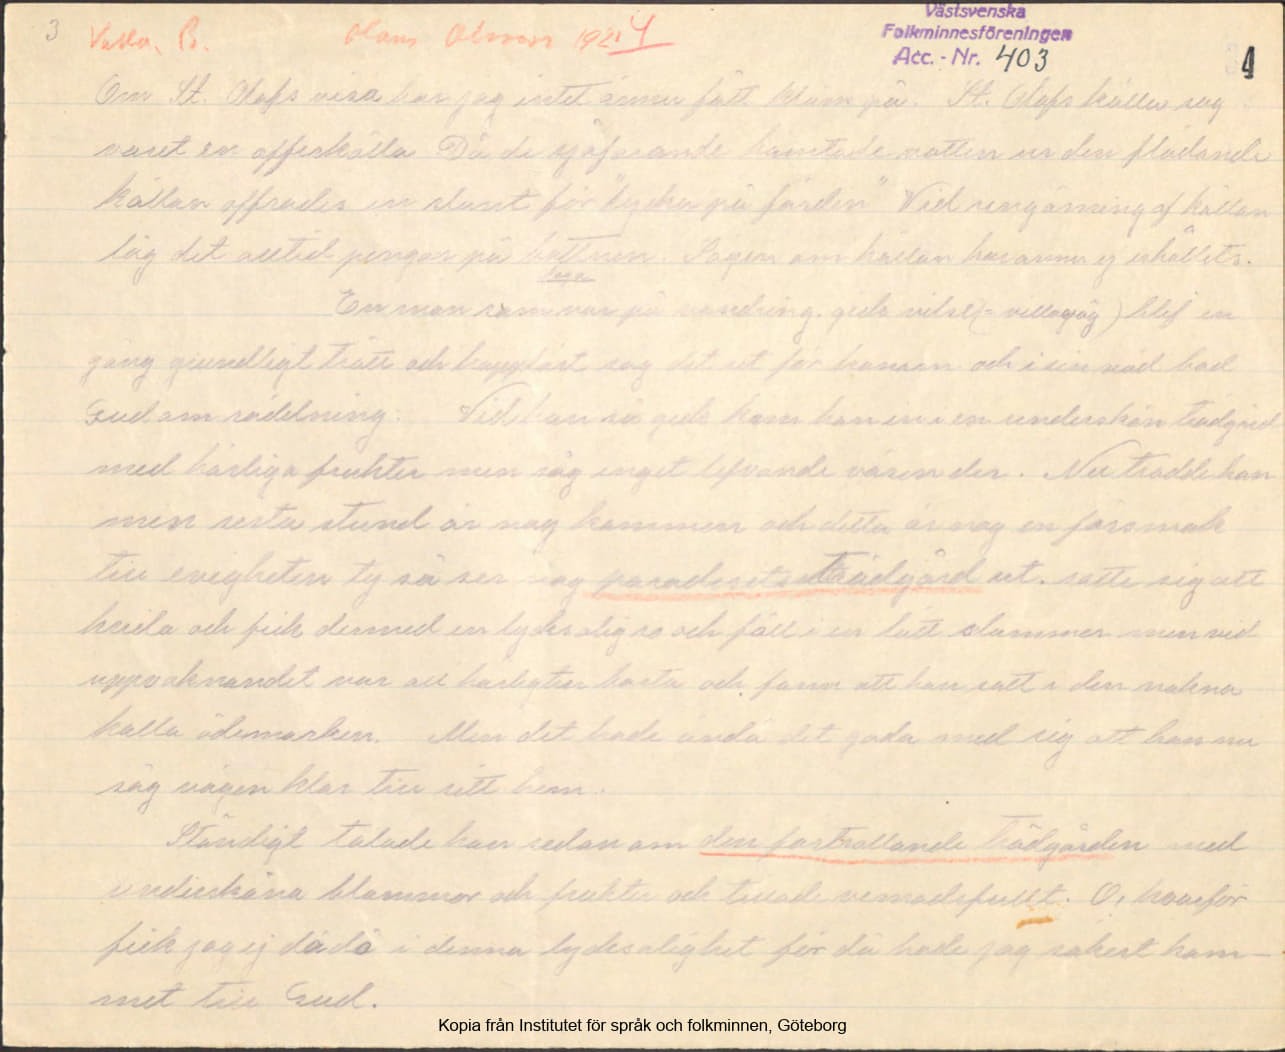 3 Valla, B. Olaus Olsson 1924
Västsvenska
Folkminnesföreningen
Acc. - Nr. 403
4
Om St. Olafs visa har jag intet ännu fått klam på. St. Olofs källa sag
varit en offerkälla Då de sjöfarande hämtade vatten ur den flödande
källan offrades en slant för "lycka på färden" Vid rengörning af källan
låg det alltid pengar på bottnen. Sagen om källan har annu ej erhållits.
Saga
En man som var på vandring gick vilse (= villogåg) blef en
gång grundligt trött och hopplöst såg det ut för honom och i sin nöd bad
Gud om räddning. Vid han så gick kom han in i en underskön trädgård
med härliga frukter men såg inget lefvande väsen der. Nu trodde han
min sista stund är nog kommen och detta är nog en försmak
till evigheten ty så ser nog paradisets Trädgård ut. satte sig att
hvila och fick dermed en lycksalig ro och föll i en lätt slummer men vid
uppvaknandet var all härligheten borta och fann att han satt i den nakna
kalla ödemarken. Men det hade ändå det goda med sig att han nu
såg vägen klar till sitt hem.
Ständigt talade han sedan om den förtrollande trädgården med
undersköna blommor och frukter och tillade vemodsfullt. O, hvarför
fick jag ej dö då i denna lycksalighet för då hade jag säkert kom-
met till Gud.
Kopia från Institutet för språk och folkminnen, Göteborg